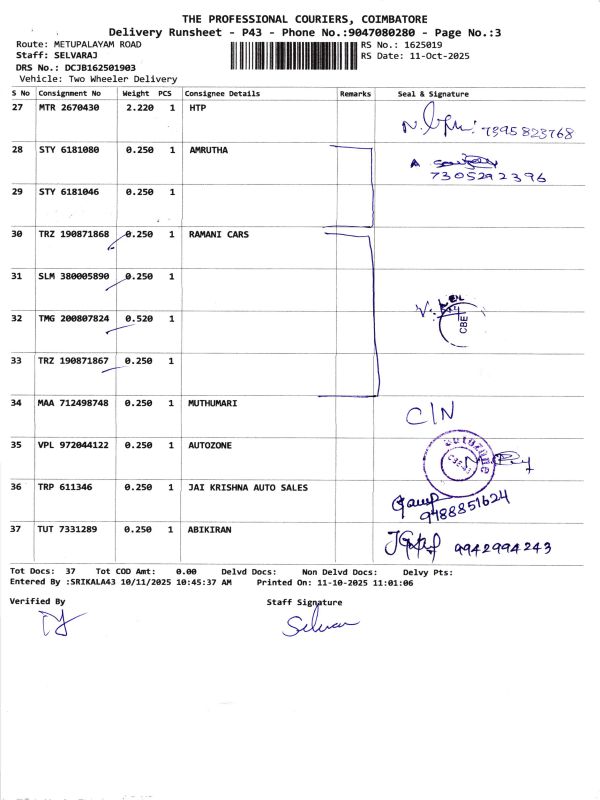 THE PROFESSIONAL COURIERS, COIMBATORE
Delivery Runsheet - P43 - Phone No.:9047080280 - Page No.:3
Route: METUPALAYAM ROAD RS No.: 1625019
Staff: SELVARAJ RS Date: 11-Oct-2025
DRS No.: DCJB162501903
Vehicle: Two Wheeler Delivery
S No Consignment No Weight PCS Consignee Details Remarks Seal & Signature
27 MTR 2670430 2.220 1 HTP
7395823768
28 STY 6181080 0.250 1 AMRUTHA
7305292396
29 STY 6181046 0.250 1
30 TRZ 190871868 0.250 1 RAMANI CARS
31 SLM 380005890 0.250 1
32 TMG 200807824 0.520 1 CBE
33 TRZ 190871867 0.250 1
34 MAA 712498748 0.250 1 MUTHUMARI C/N
35 VPL 972044122 0.250 1 AUTOZONE autozone
36 TRP 611346 0.250 1 JAI KRISHNA AUTO SALES
9488851624
37 TUT 7331289 0.250 1 ABIKIRAN 9942994243
Tot Docs: 37 Tot COD Amt: 0.00 Delvd Docs: Non Delvd Docs: Delvy Pts:
Entered By :SRIKALA43 10/11/2025 10:45:37 AM Printed On: 11-10-2025 11:01:06
Verified By Staff Signature
Selvan